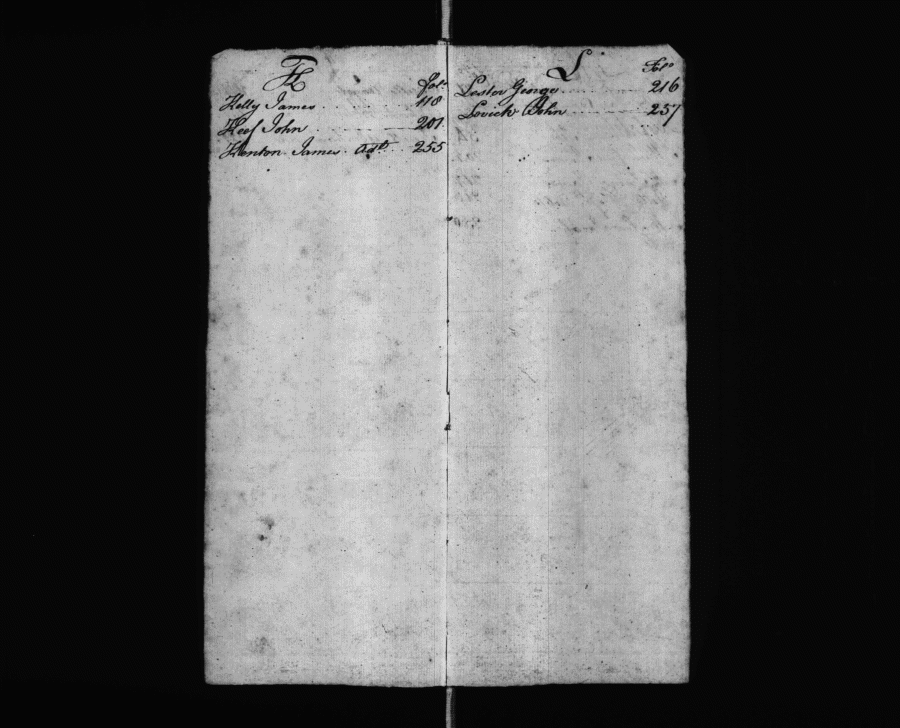 K
Fol°
Kelly James 118
Keef John 201
Kenton James Adt. 255
L
Fol°
Lester George 216
Lovick John 257